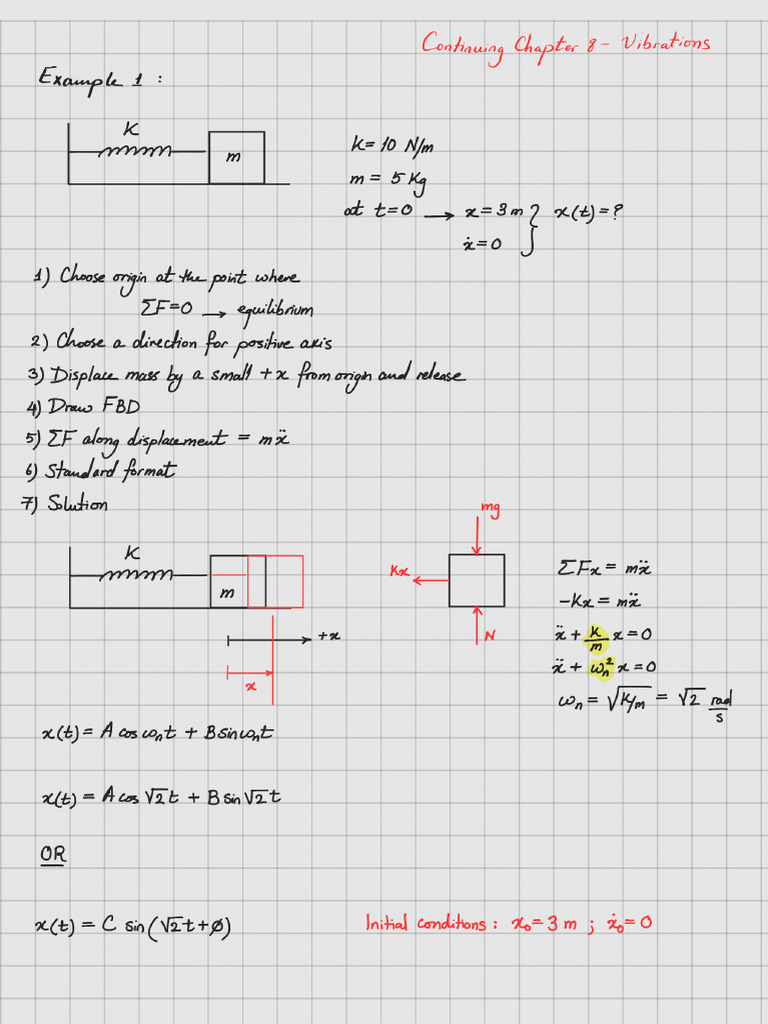 Continuing Chapter 8 - Vibrations
Example 1 :
K
m
K = 10 N/m
m = 5 Kg
at t=0 → x = 3 m } x(t) = ?
ẋ = 0
1) Choose origin at the point where
ΣF=0 → equilibrium
2) Choose a direction for positive axis
3) Displace mass by a small +x from origin and release
4) Draw FBD
5) ΣF along displacement = mẍ
6) Standard format
7) Solution
K
m
+x
x
mg
Kx
N
ΣFx = mẍ
-Kx = mẍ
ẍ + K/m x = 0
ẍ + ωn² x = 0
ωn = √K/m = √2 rad/s
x(t) = A cos ωnt + B sin ωnt
x(t) = A cos √2 t + B sin √2 t
OR
x(t) = C sin (√2 t + ø)
Initial conditions : x₀ = 3 m ; ẋ₀ = 0